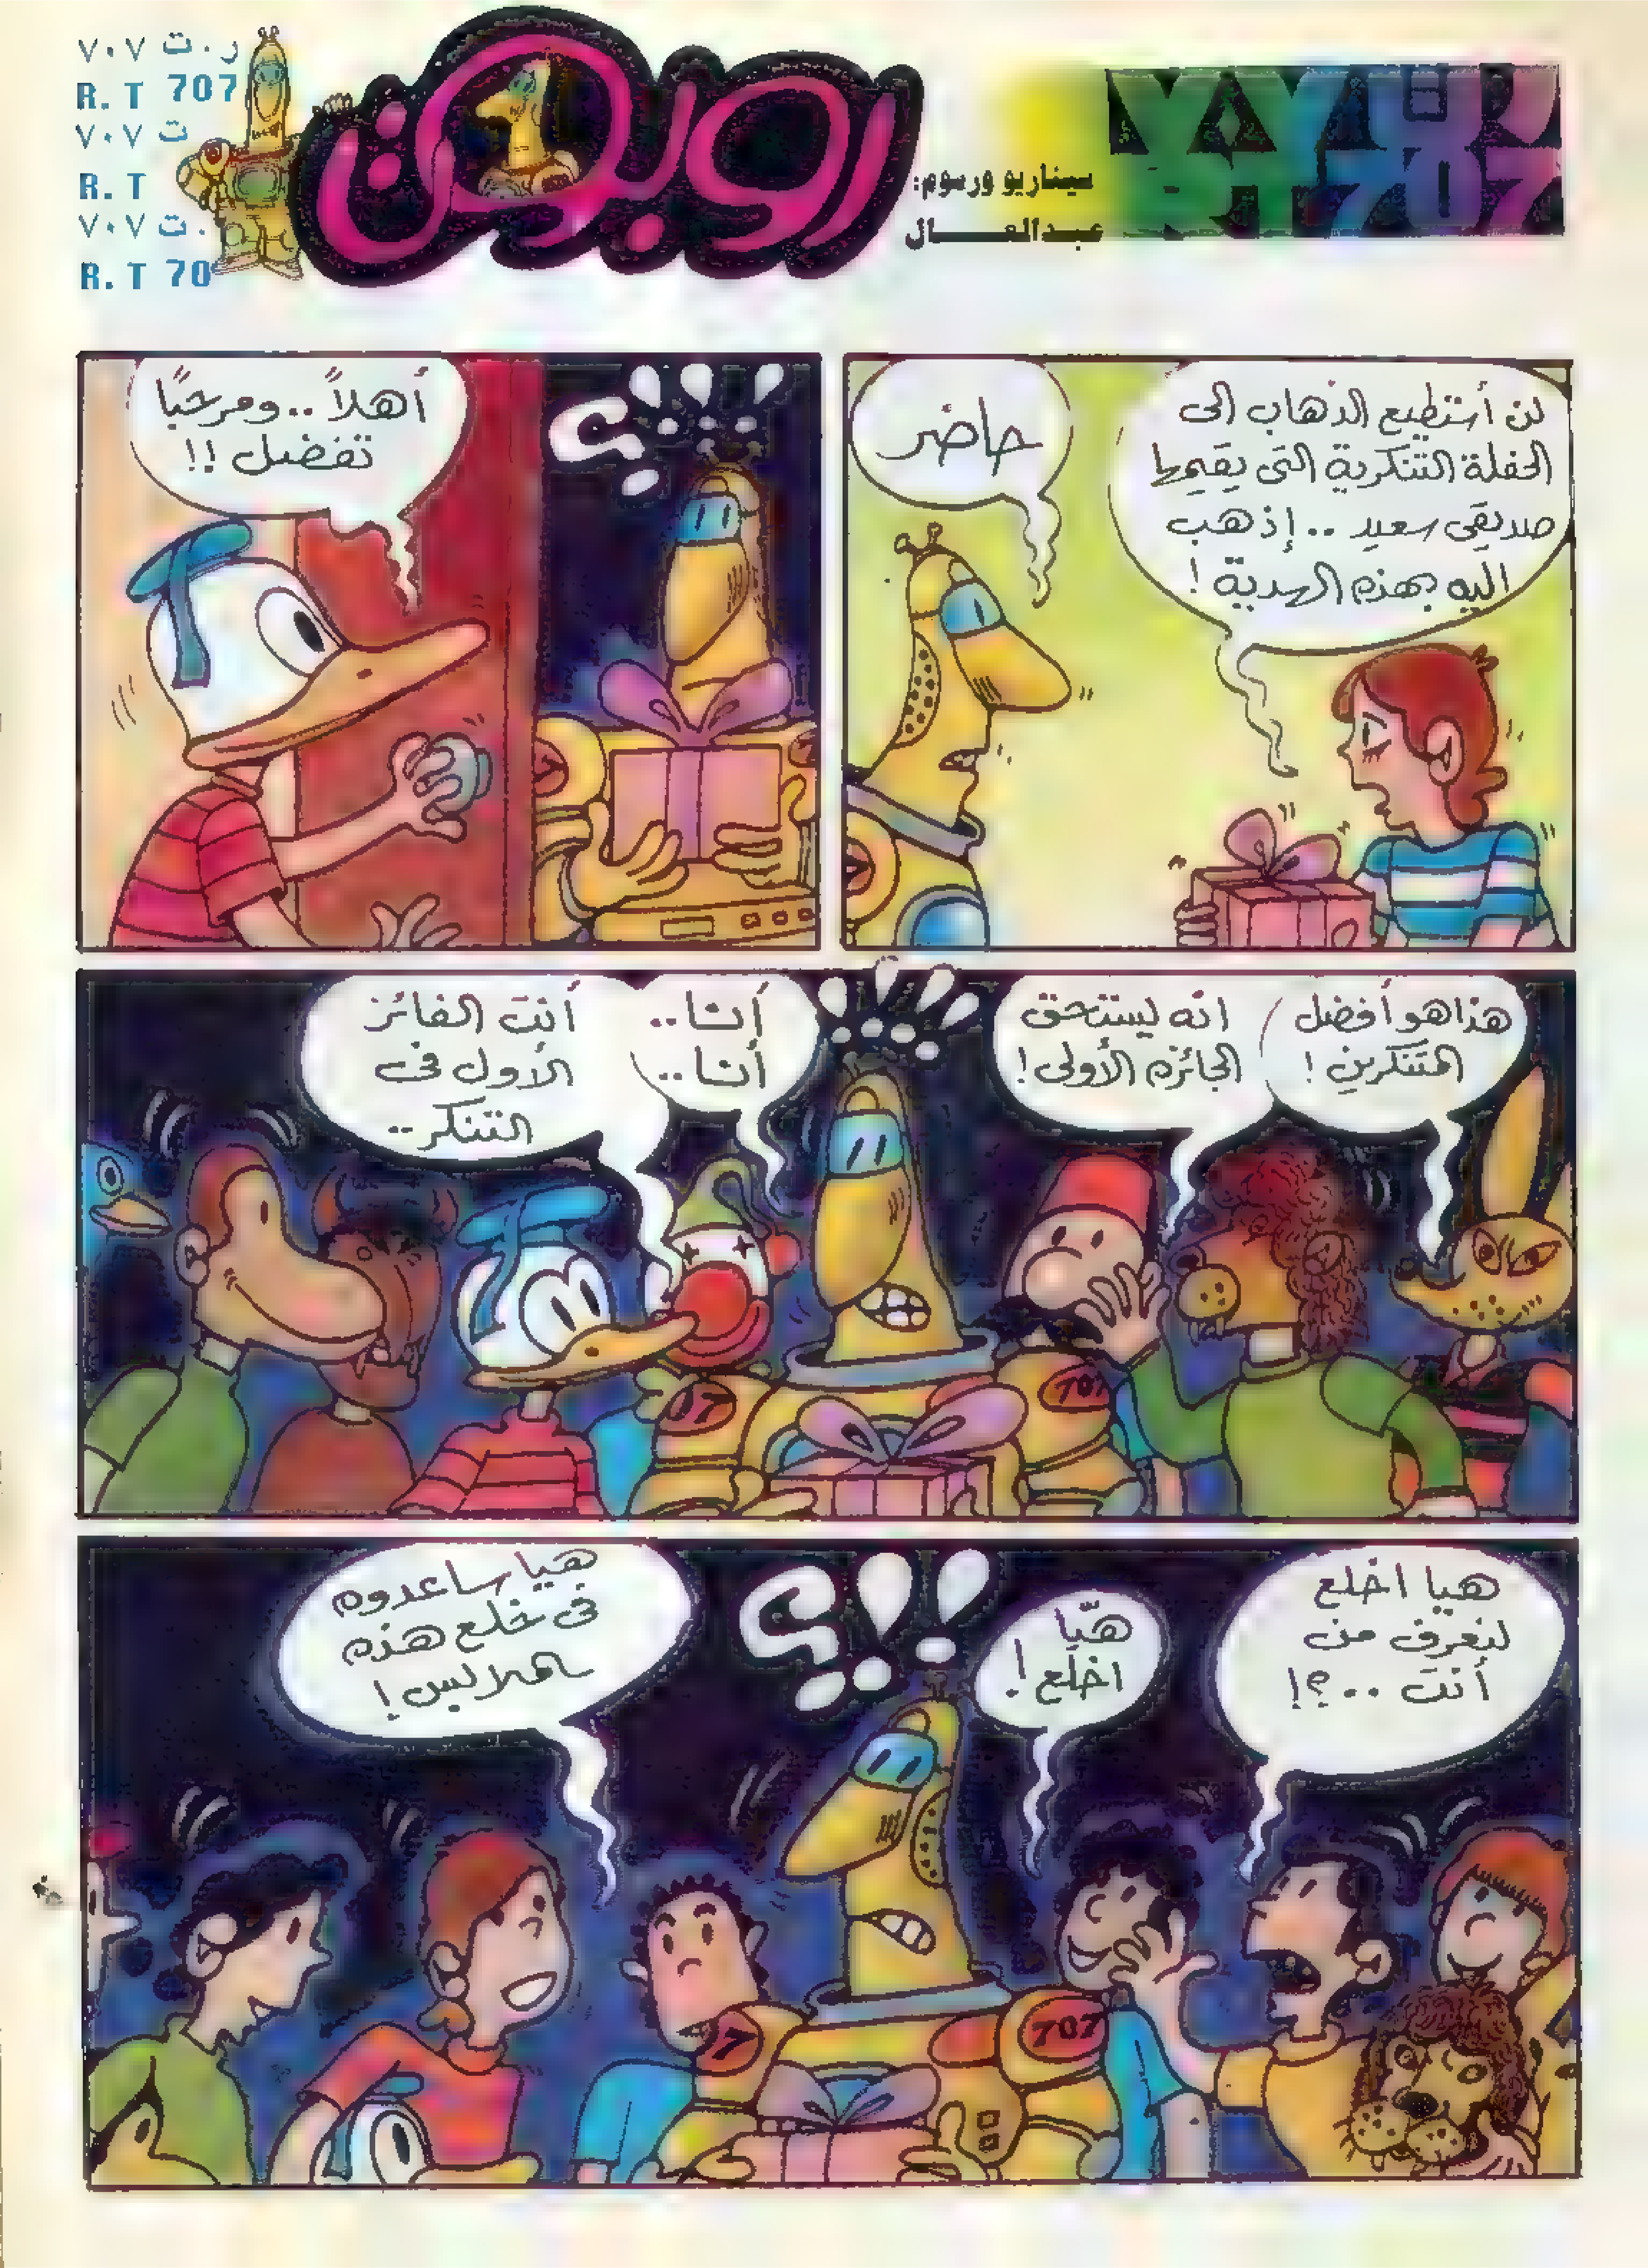 ر.ت ٧٠٧
R. T 707
ت ٧٠٧
R. T
.ت ٧٠٧
R. T 70
روبوت
سيناريو ورسوم:
عبدالعـــال
RT 707
لن أستطيع الذهاب إلى
الحفلة التنكرية التى يقيمها
صديقى سعيد .. إذهب
اليه بهذه الهدية !
حاضر
أهلاً .. ومرحبًا
تفضل !!
؟!!!
هذا هو أفضل
المتنكرين !
انه يستحق
الجائزة الأولى !
!!!!
أنا ..
أنا ..
أنت الفائز
الأول فى
التنكر ..
707
هيا اخلع
لنعرف من
أنت .. ؟!
هيّا
اخلع !
؟!!
هيا ساعدوه
فى خلع هذه
الملابس !
7
707